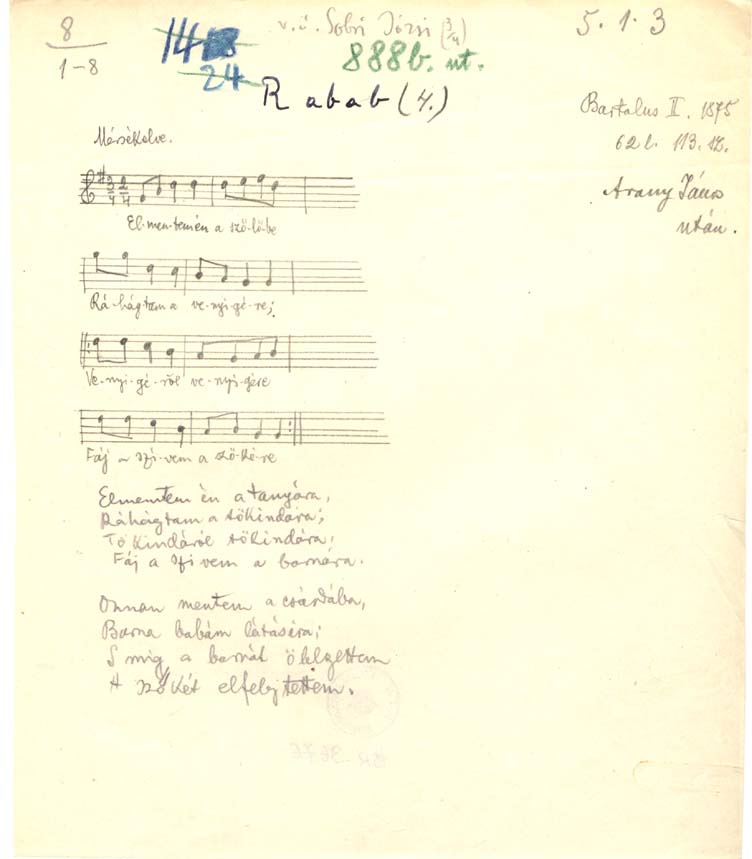 8
1-8
v.ö. Sobri Józsi (3/4)
5. 1. 3
14
24
888b. ut.
Rabab (4.)
Bartalus II. 1875
62 l. 113. sz.
Arany János
után.
Mérsékelve.
3/4 2/4
El-men-tem én a sző-lő-be
Rá-hágtam a ve-nyi-gé-re;
Ve-nyi-gé-ről ve-nyi-gére
Fáj a szí-vem a sző-ké-re
Elmentem én a tanyára,
Ráhágtam a tökindára;
Tökindáról tökindára,
Fáj a szivem a barnára.
Onnan mentem a csárdába,
Barna babám látására;
S míg a barnát ölelgettem
A szőkét elfelejtettem.